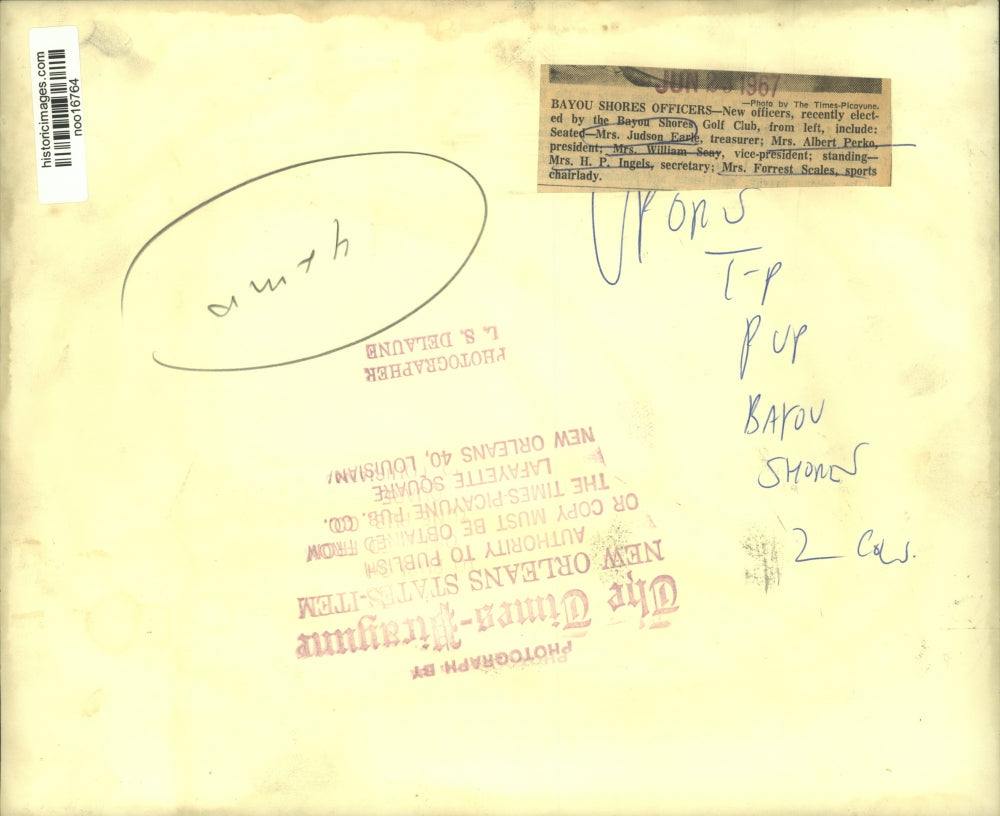 historicimages.com
noo16764
JUN 1967
—Photo by The Times-Picayune.
BAYOU SHORES OFFICERS—New officers, recently elect-
ed by the Bayou Shores Golf Club, from left, include:
Seated—Mrs. Judson Earle, treasurer; Mrs. Albert Perko,
president; Mrs. William Seay, vice-president; standing—
Mrs. H. P. Ingels, secretary; Mrs. Forrest Scales, sports
chairlady.
T-P
P UP
BAYOU
SHORES
2 Cols.
PHOTOGRAPHER
L. S. DELAUNE
PHOTOGRAPH BY
The Times-Picayune
NEW ORLEANS STATES-ITEM
AUTHORITY TO PUBLISH
OR COPY MUST BE OBTAINED FROM
THE TIMES-PICAYUNE PUB. CO.
LAFAYETTE SQUARE
NEW ORLEANS 40, LOUISIANA